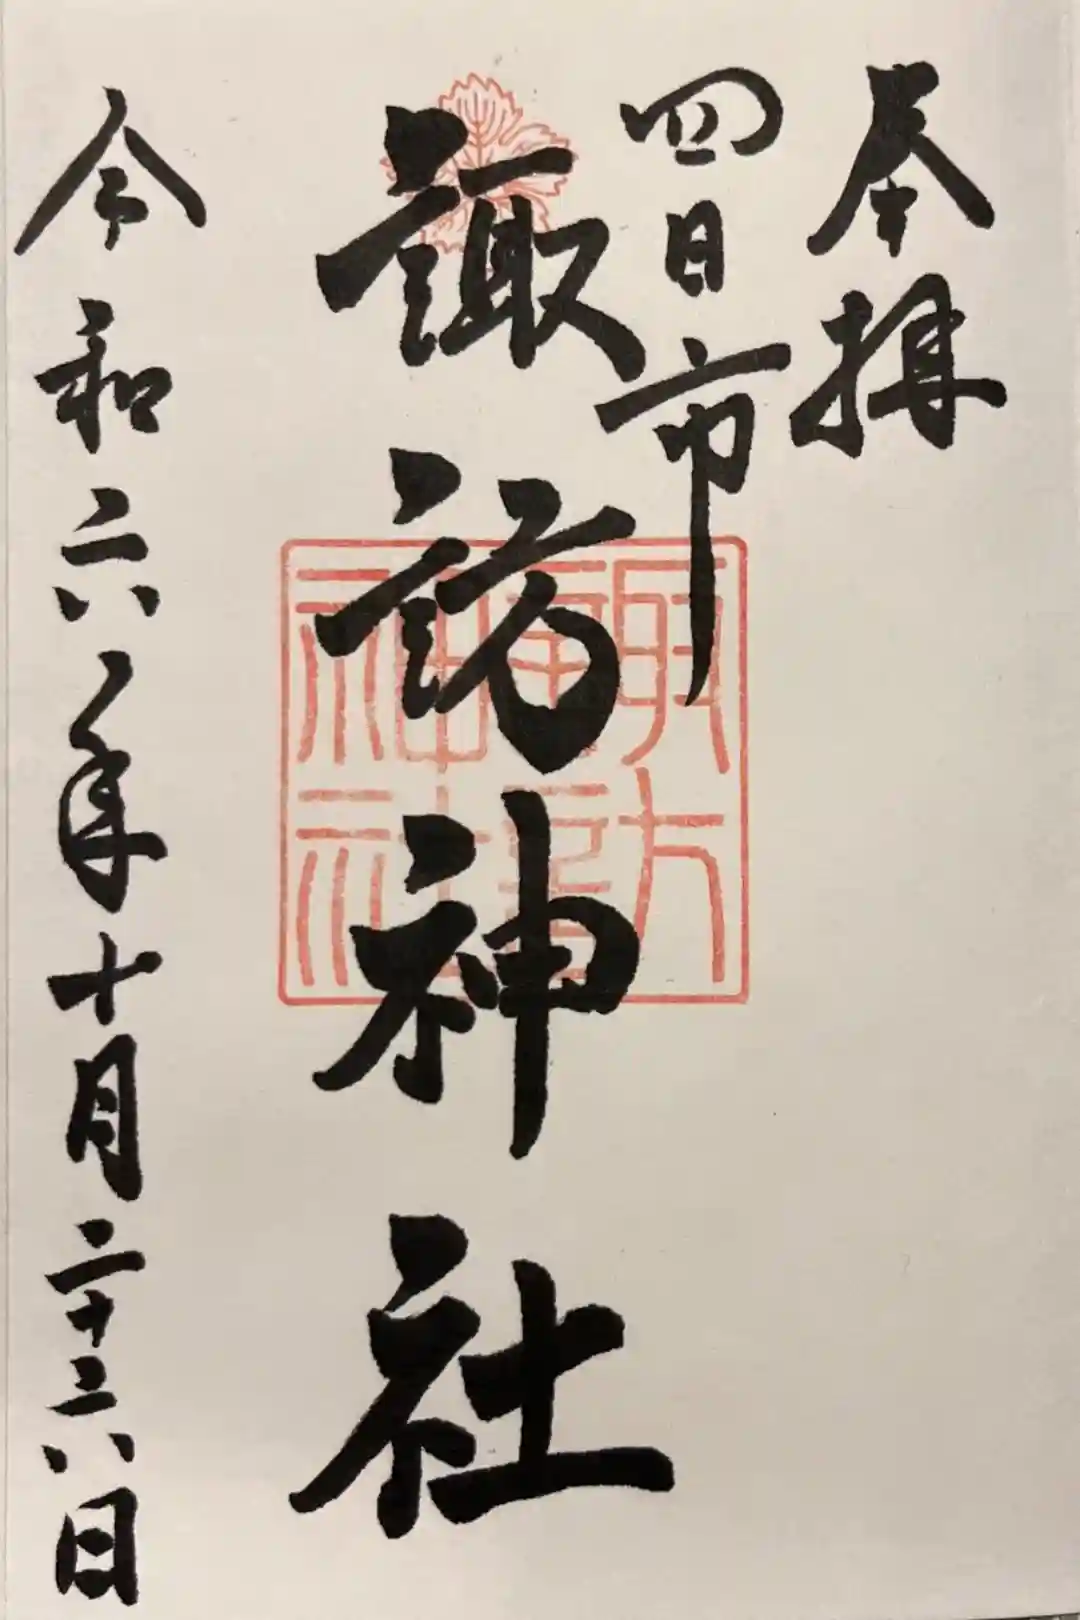 奉拝
四日市
諏訪神社
諏訪神社
令和六年十月二十六日